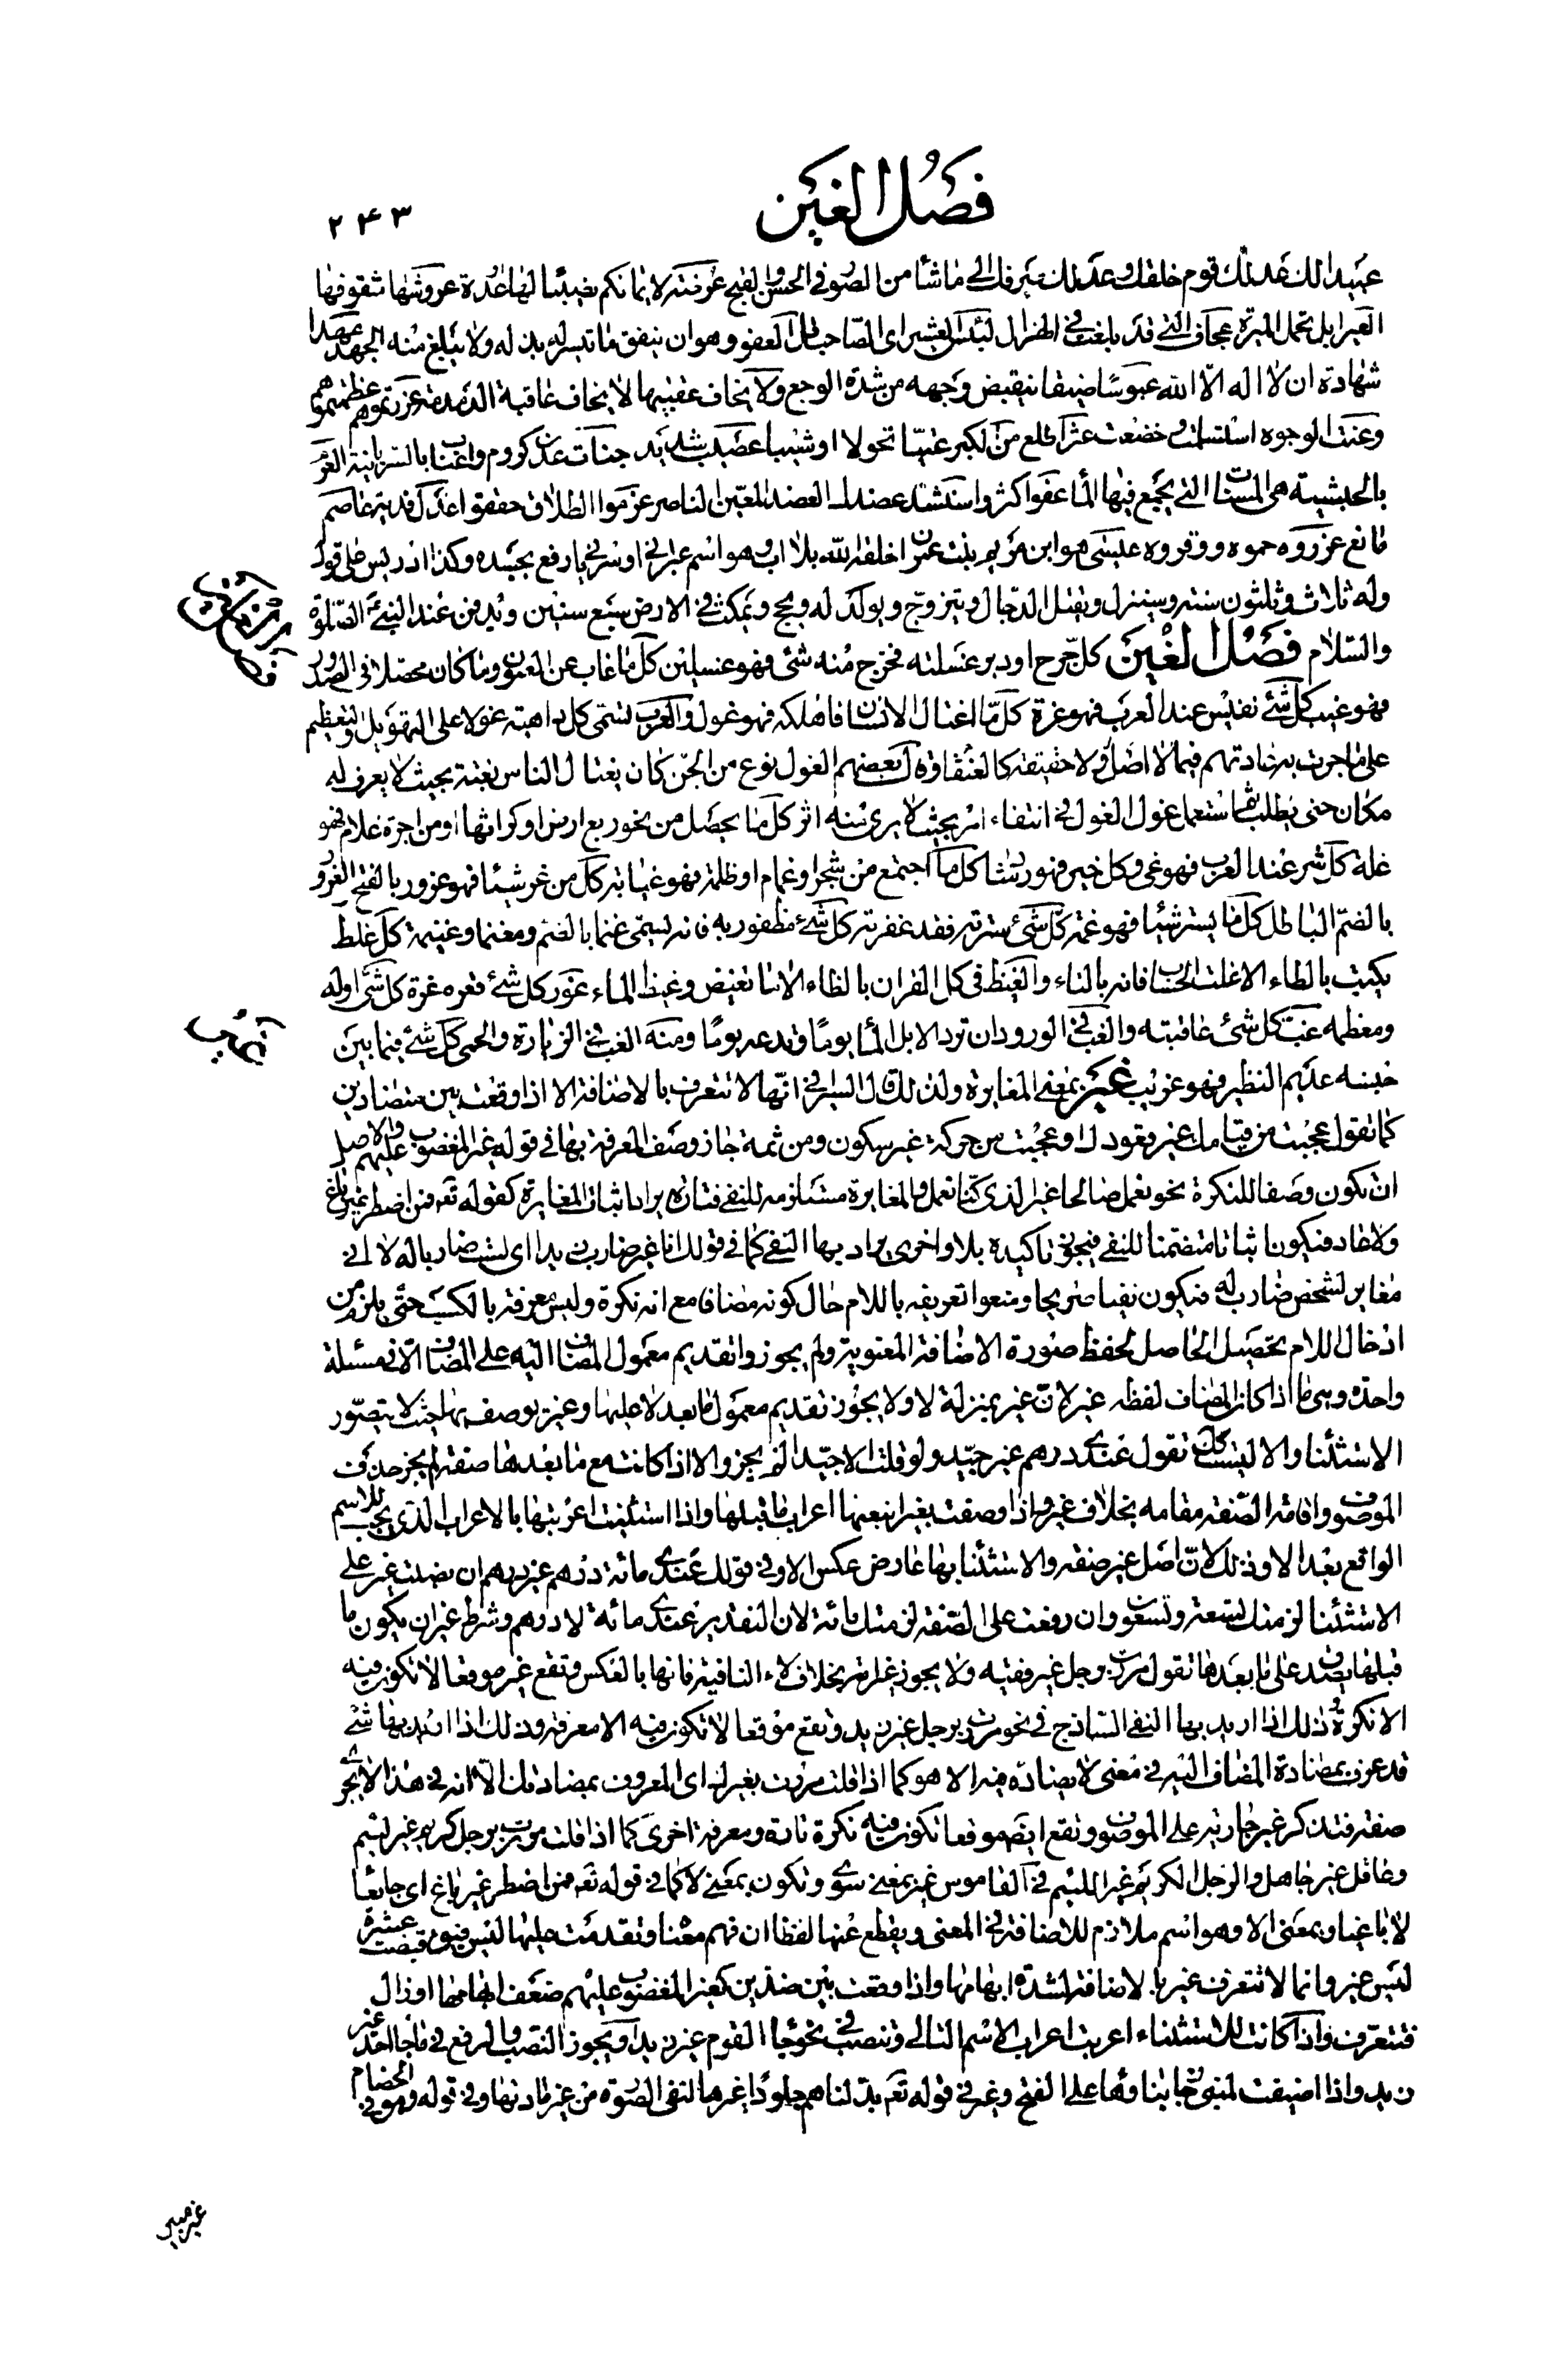 فصل الغين
٢٤٣
عبيدا لك فعدلك قوم خلقك وعدلك صرفك الى ماشآء من الصور في الحسن والقبح عرضة لايمانكم نصبا لها عدة عروشها سقوفها
العير ابل تحمل الميرة عجاف التي قد بلغت في الهزال لبئس العشير اى الصاحب قل العفو وهو ان ينفق ما تيسر له بذله ولا يبلغ منه الجهد عهدا
شهادة ان لا اله الا الله عبوسا ضيقا ينقبض وجهه من شدة الوجع ولا يخاف عقبيها لا يخاف عاقبة الدمدمة عزرتموهم عظمتموهم
وعنت الوجوه استسلمت وخضعت عثر اطلع من الكبر عتيّا نحولا او شيبا عصيب شديد جنات عدن كروم واعناب بالسريانية العرم
بالحبشية هى المسنات التي يجمع فيها المآء عفوا كثروا سنشد عضدك العضد المعين الناصر عزموا الطلاق حققوا عدل فدية عاصم
مانع عزروه حموه ووقروه عيسى هو ابن مريم بنت عمران خلقه الله بلا اب وهو اسم عبراني او سرياني رفع بجسده وكذا ادريس على قول
وله ثلاث وثلثون سنة وسينزل ويقتل الدجال ويتزوج ويولد له ويحج ويمكث في الارض سبع سنين ويدفن عند النبي عليه الصلوة
والسلام فصل الغين كل جرح او دبر غسلته فخرج منه شئ فهو غسلين كل ما غاب عن العيون وما كان محصلا في الصدور
فهو غيب كل شئ نفيس عند العرب فهو غرة كل ما اغتال الانسان فاهلكه فهو غول والعرب تسمى كل داهية غولا على التهويل والتعظيم
على ما جرت به عادتهم فيما لا اصل له ولا حقيقة كالعنقاء قال بعضهم الغول نوع من الجن كان يغتال الناس بغتة بحيث لا يعرف له
مكان حتى يطلب ثم استعمل غول الغول في انتفاء امر بحيث لا يرى منه اثر كل ما يحصل من نحو ريع ارض او كرائها او من اجرة غلام فهو
غلة كل شر عند العرب فهو غي وكل خير فهو رشاد كل ما اجتمع من شجر او غمام او ظلمة فهو غيابة كل من غر شيئا فهو غرور بالفتح والغرور
بالضم الباطل كل ما يستر شيئا فهو غمة كل شئ سترته فقد غفرته كل شئ مظفور به فانه يسمى غنما بالضم ومغنما وغنيمة كل غلط
يكتب بالطاء الا غلت الحساب فانه بالتاء والغيظ في كل القران بالظاء الا تغيض وغيظ الماء غور كل شئ قعره غرة كل شئ اوله
ومعظمه غب كل شئ عاقبته والغب في الورود ان ترد الابل المآء يوما وتدعه يوما ومنه الغب في الزيارة والحمى كل شئ فيما بين
جنسه عديم النظير فهو غريب غير بمعنى المغايرة ولذلك قال السيرافي انها لا تتعرف بالاضافة الا اذا وقعت بين متضادين
كما تقول عجبت من قيامك غير قعودك او عجبت من حركة غير سكون ومن ثمة جاز وصف المعرفة بها في قوله غير المغضوب عليهم والاصل
ان تكون وصفا للنكرة نحو نعمل صالحا غير الذي كنا نعمل والمغايرة مستلزمة للنفي فتارة يراد اثبات المغايرة كقوله تعم فمن اضطر غير باغ
ولا عاد فيكون اثباتا متضمنا للنفي فيجوز تاكيده بلا واخرى يراد بها النفي كما في قولك انا غير ضارب زيدا اى لست ضاربا له لا اني
مغاير لشخص ضارب له فيكون نفيا صريحا ومنعوا تعريفه باللام حال كونه مضافا مع انه نكرة وليس معرفة بالكسب حتى يلزم من
ادخال اللام تحصيل الحاصل لحفظ صورة الاضافة المعنوية ولم يجوزوا تقديم معمول المضاف اليه على المضاف الا في مسئلة
واحدة وهى ما اذا كان المضاف لفظه غير لان غير بمنزلة لا ولا يجوز تقديم معمول ما بعد لا عليها وغير يوصف بها حيث لا يتصور
الاستثنا والا ليست كذلك تقول عندي درهم غير جيد ولو قلت الا جيد لم يجز والا اذا كانت مع ما بعدها صفة لم يجز حذف
الموصوف واقامة الصفة مقامه بخلاف غير واذا وصفت بغير اتبعتها اعراب ما قبلها واذا استثنيت اعربتها بالاعراب الذي يجب للاسم
الواقع بعد الا وذلك لان اصل غير صفة والاستثنا بها عارض عكس الا وفي قولك عندي مائة درهم غير درهم ان نصبت غير على
الاستثنا لزمك تسعة وتسعون وان رفعت على الصفة لزمك مائة لان التقدير عندي مائة لا درهم وشرط غير ان يكون ما
قبلها يصدق على ما بعدها تقول مررت برجل غير فقيه ولا يجوز غير امرأة بخلاف لاء النافية فانها بالعكس وتقع غير موقعا لا تكون فيه
الا نكرة وذلك اذا اريد بها النفي الساذج في نحو مررت برجل غير زيد وتقع موقعا لا تكون فيه الا معرفة وذلك اذا اريد بها شئ
قد عرف بمضادة المضاف اليه في معنى لا يضاده فيه الا هو كما اذا قلت مررت بغيرك اى المعروف بمضادتك الا انه في هذا لا يجري
صفة فتذكر غير جارية على الموصوف وتقع ايضا موقعا تكون فيه نكرة تارة ومعرفة اخرى كما اذا قلت مررت برجل كريم غير لئيم
وعاقل غير جاهل والرجل الكريم غير اللئيم في القاموس غير بمعنى سوى وتكون بمعنى لا كما في قوله تعم فمن اضطر غير باغ اى جايعا
لا باغيا وبمعنى الا وهو اسم ملازم للاضافة في المعنى ويقطع عنها لفظا ان فهم معناه وتقدمت عليها ليس فيوم قبضت عشرة
ليس غير وانما لا تتعرف غير بالاضافة لشدة ابهامها واذا وقعت بين ضدين كغير المغضوب عليهم ضعف ابهامها او زال
فتتعرف واذا كانت للاستثناء اعربت اعراب الاسم التالي وتنصب في نحو جا القوم غير زيد ويجوز النصب والرفع في ما جا احد غير
زيد واذا اضيفت لمبنى جاز بناؤها على الفتح وغير في قوله تعم بدلناهم جلودا غيرها لنفي الصورة من غير مادتها وفي قوله وهو في الخصام
غير مبين